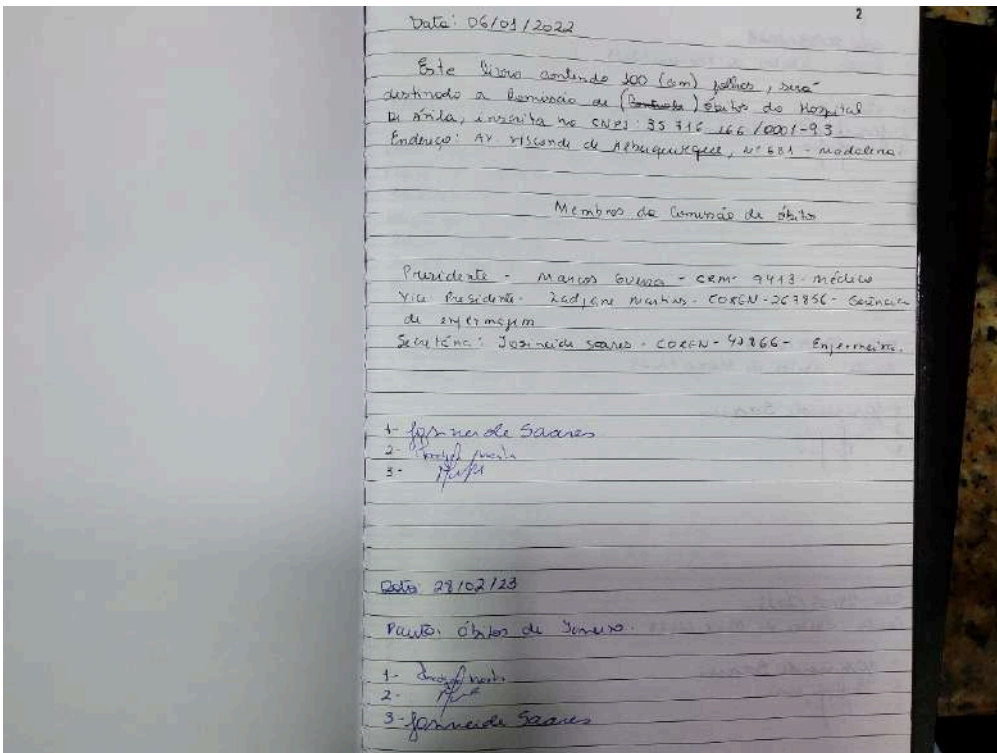 2
Data: 06/01/2022
Este livro contendo 100 (cem) folhas, será
destinado a Comissão de () óbitos do Hospital
D'Ávila, inscrita no CNPJ: 35 716 166/0001-93
Endereço: Av Visconde de Albuquerque, Nº 681 - Madalena.
Membros da Comissão de óbito
Presidente - Marcos - CRM - 9413 - médico
Vice Presidente - Ladjane Martins - COREN - 267856 - Gerência
de enfermagem
Secretária: Josineide Soares - COREN - 42866 - Enfermeira.
1- Josineide Soares
2-
3-
Data: 28/02/23
Pauta: óbitos de Janeiro.
1-
2-
3- Josineide Soares